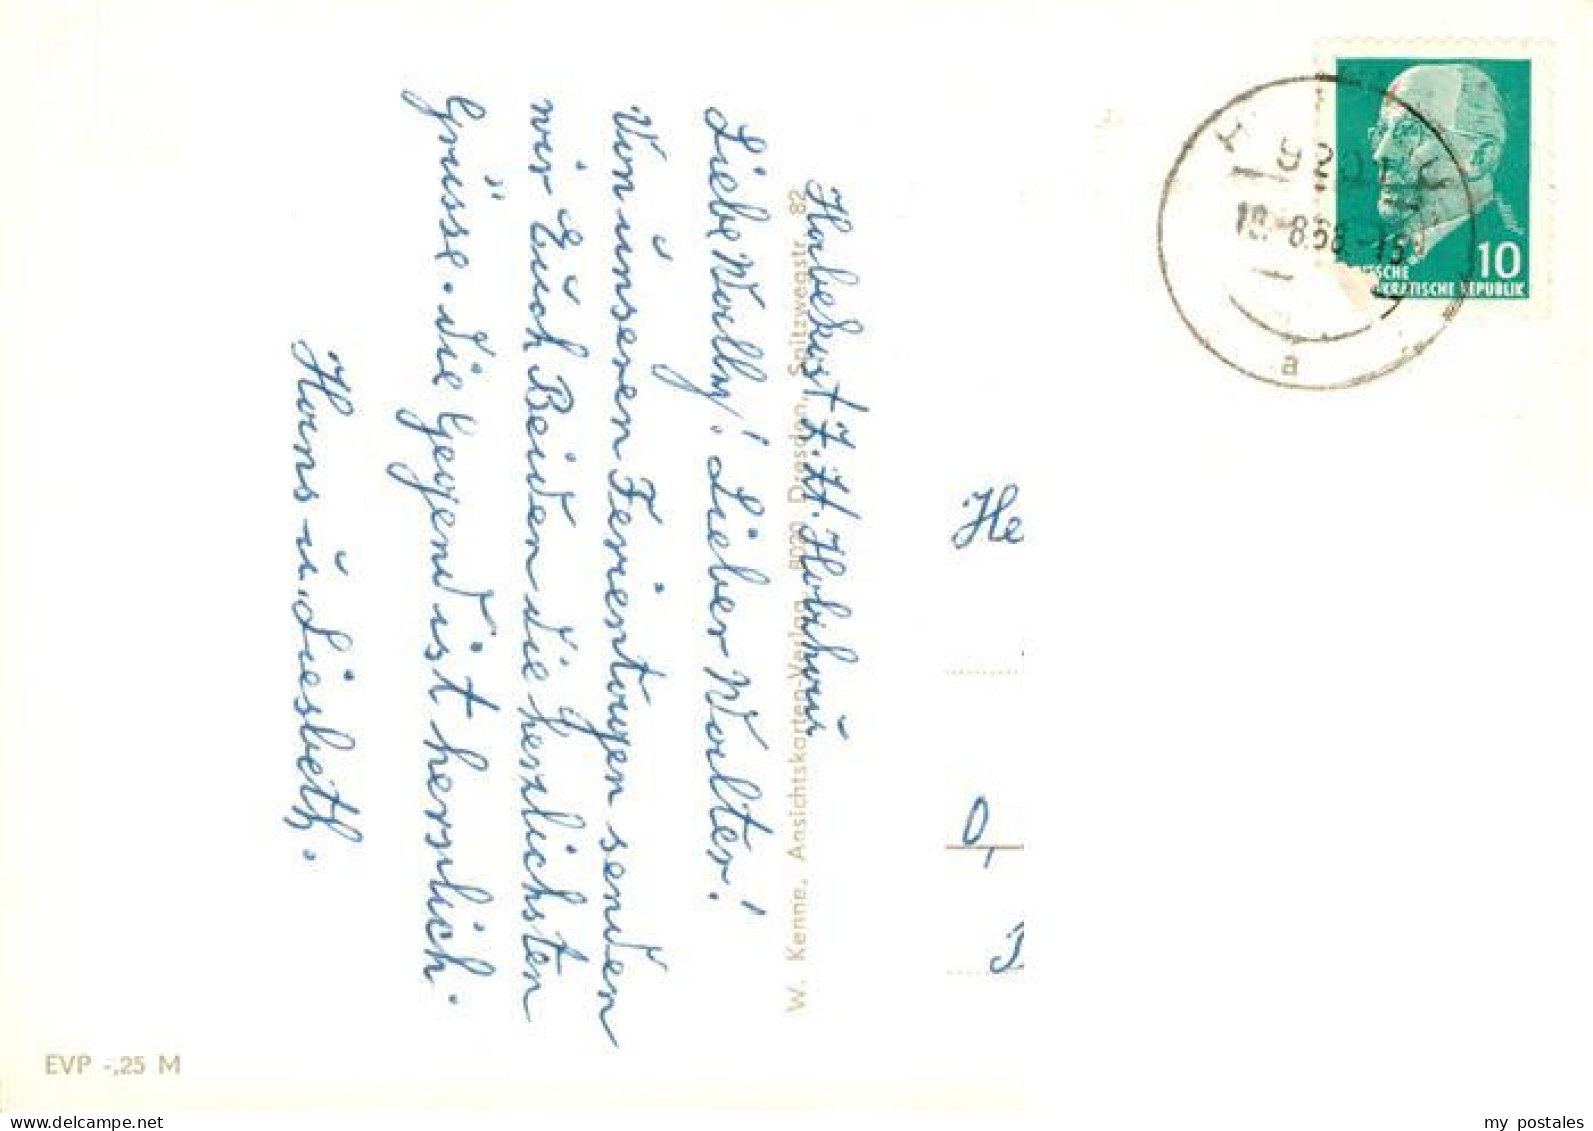 Liebe Wally! Lieber Walter!
Von unseren Ferientagen senden
wir Euch Beiden die herzlichsten
Grüsse. die Gegend ist herrlich.
Hans u. Liesbeth.
W. Kenne, Ansichtskarten-Verlag, 8020 Dresden, Spitzwegstr. 82
EVP -,25 M
10
TSCHE
KRATISCHE REPUBLIK
9201
a
He
O,
my postales